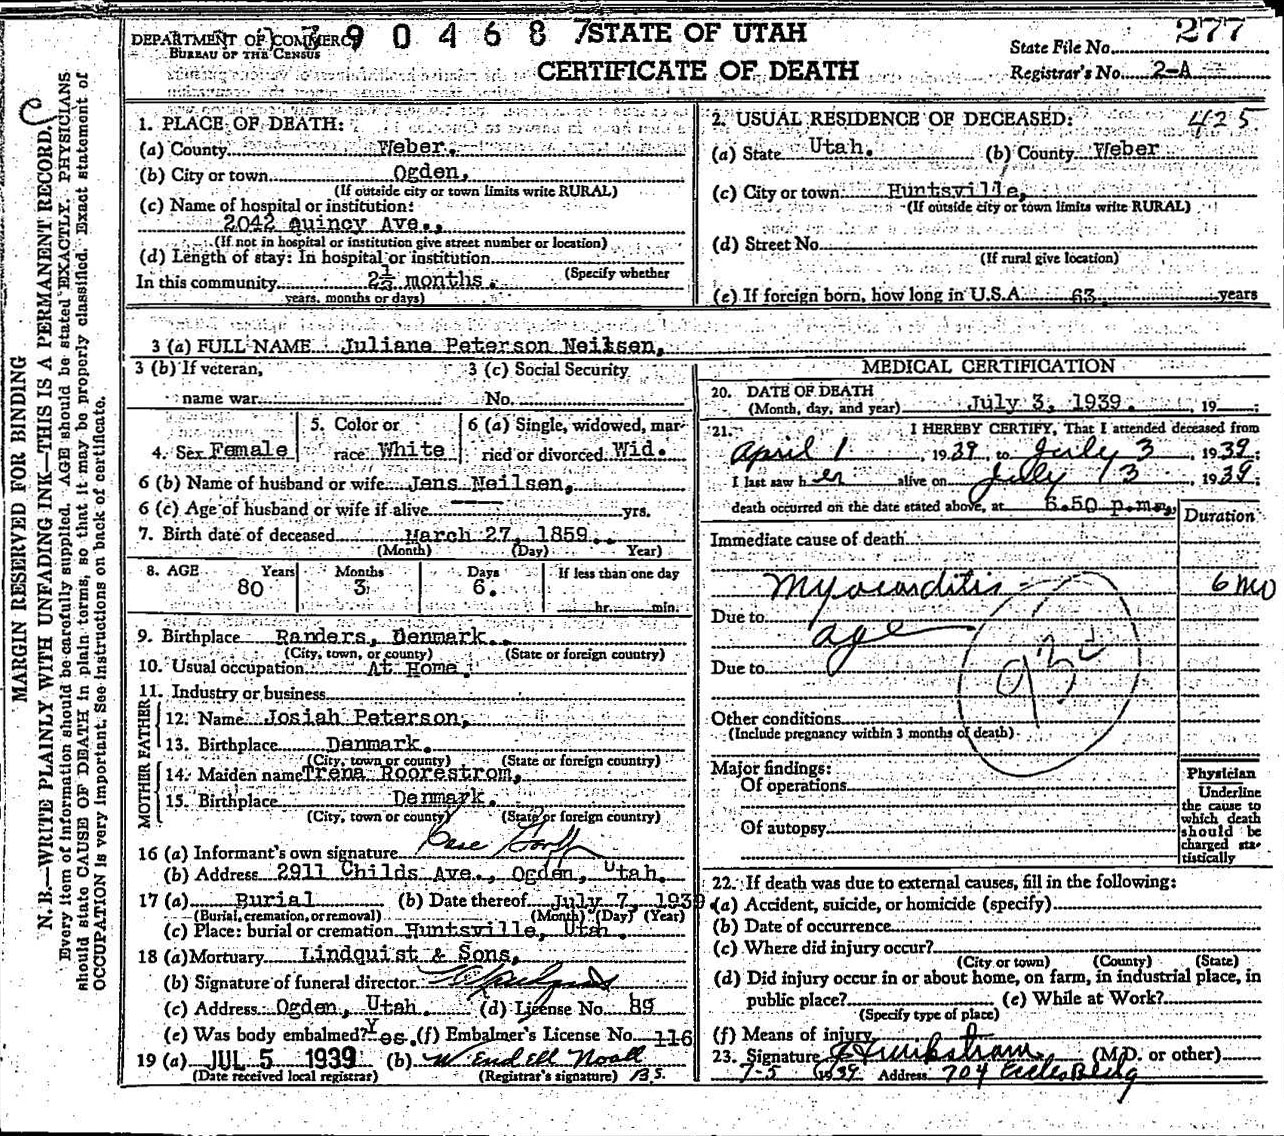 DEPARTMENT OF COMMERCE
BUREAU OF THE CENSUS
390468 7
STATE OF UTAH
CERTIFICATE OF DEATH
State File No. 277
Registrar's No. 2-A
MARGIN RESERVED FOR BINDING
N. B.—WRITE PLAINLY WITH UNFADING INK—THIS IS A PERMANENT RECORD.
Every item of information should be carefully supplied. AGE should be stated EXACTLY. PHYSICIANS
should state CAUSE OF DEATH in plain terms, so that it may be properly classified. Exact statement of
OCCUPATION is very important. See instructions on back of certificate.
1. PLACE OF DEATH:
(a) County Weber.
(b) City or town Ogden,
(If outside city or town limits write RURAL)
(c) Name of hospital or institution:
2042 Quincy Ave.,
(If not in hospital or institution give street number or location)
(d) Length of stay: In hospital or institution
(Specify whether
In this community 2½ months.
years, months or days)
2. USUAL RESIDENCE OF DECEASED: 425
(a) State Utah. (b) County Weber
(c) City or town Huntsville,
(If outside city or town limits write RURAL)
(d) Street No.
(If rural give location)
(e) If foreign born, how long in U.S.A. 63. years
3 (a) FULL NAME Juliane Peterson Neilsen,
3 (b) If veteran, name war
3 (c) Social Security No.
4. Sex Female
5. Color or race White
6 (a) Single, widowed, married or divorced Wid.
6 (b) Name of husband or wife Jens Neilsen,
6 (c) Age of husband or wife if alive yrs.
7. Birth date of deceased March 27, 1859.
(Month) (Day) Year)
8. AGE Years Months Days If less than one day
80 3 6. hr. min.
9. Birthplace Randers, Denmark.
(City, town, or county) (State or foreign country)
10. Usual occupation At Home.
11. Industry or business
FATHER
12. Name Josiah Peterson,
13. Birthplace Denmark.
(City, town or county) (State or foreign country)
MOTHER
14. Maiden name Trena Roorestrom,
15. Birthplace Denmark.
(City, town or county) (State or foreign country)
16 (a) Informant's own signature
(b) Address 2911 Childs Ave., Ogden, Utah.
17 (a) Burial (b) Date thereof July 7, 1939
(Burial, cremation, or removal) (Month) (Day) (Year)
(c) Place: burial or cremation Huntsville, Utah.
18 (a) Mortuary Lindquist & Sons,
(b) Signature of funeral director
(c) Address Ogden, Utah. (d) License No. 89
(e) Was body embalmed? Yes. (f) Embalmer's License No. 116
19 (a) JUL 5 1939 (b) Wendell Noall
(Date received local registrar) (Registrar's signature) B.S.
MEDICAL CERTIFICATION
20. DATE OF DEATH
(Month, day, and year) July 3, 1939. , 19 ;
21. I HEREBY CERTIFY, That I attended deceased from
April 1 , 1939, to July 3 , 1939.
I last saw her alive on July 3 , 1939;
death occurred on the date stated above, at 6.50 p.m.,
Duration
Immediate cause of death
Myocarditis 6 mo
Due to age
Due to
93d
Other conditions
(Include pregnancy within 3 months of death)
Major findings:
Of operations
Of autopsy
Physician
Underline
the cause to
which death
should be
charged sta-
tistically
22. If death was due to external causes, fill in the following:
(a) Accident, suicide, or homicide (specify)
(b) Date of occurrence
(c) Where did injury occur?
(City or town) (County) (State)
(d) Did injury occur in or about home, on farm, in industrial place, in
public place? (e) While at Work?
(Specify type of place)
(f) Means of injury
23. Signature (M.D. or other)
7-5 1939. Address 704 Eccles Bldg